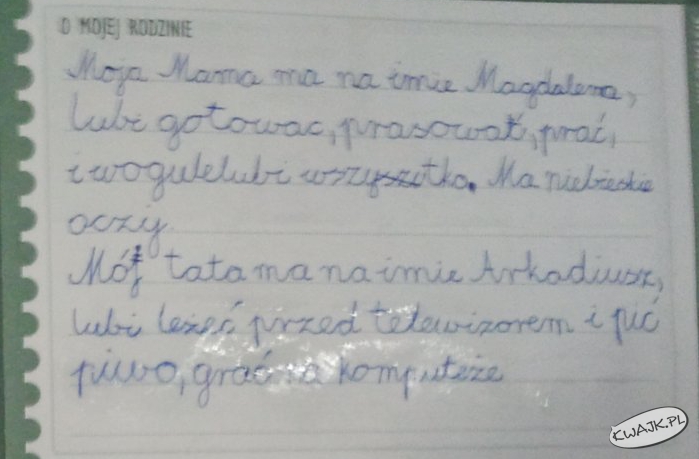 O MOJEJ RODZINIE
Moja Mama ma na imie Magdalena,
lubi gotowac, prasować, prać,
i wogule lubi wszyszutko. Ma niebieskie
oczy.
Mój tata ma na imie Arkadiusz,
lubi leżeć przed telewizorem i pić
piwo, grać na komputeże
KWAJK.PL